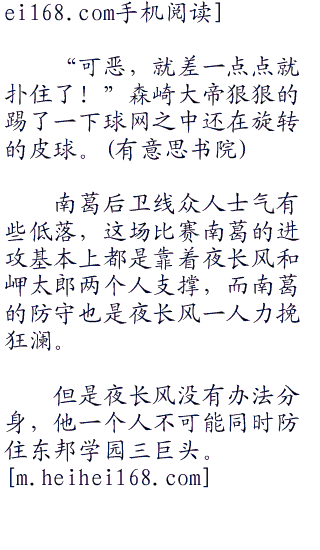 ei168.com手机阅读]
“可恶，就差一点点就
扑住了！”森崎大帝狠狠的
踢了一下球网之中还在旋转
的皮球。(有意思书院)
南葛后卫线众人士气有
些低落，这场比赛南葛的进
攻基本上都是靠着夜长风和
岬太郎两个人支撑，而南葛
的防守也是夜长风一人力挽
狂澜。
但是夜长风没有办法分
身，他一个人不可能同时防
住东邦学园三巨头。
[m.heihei168.com]